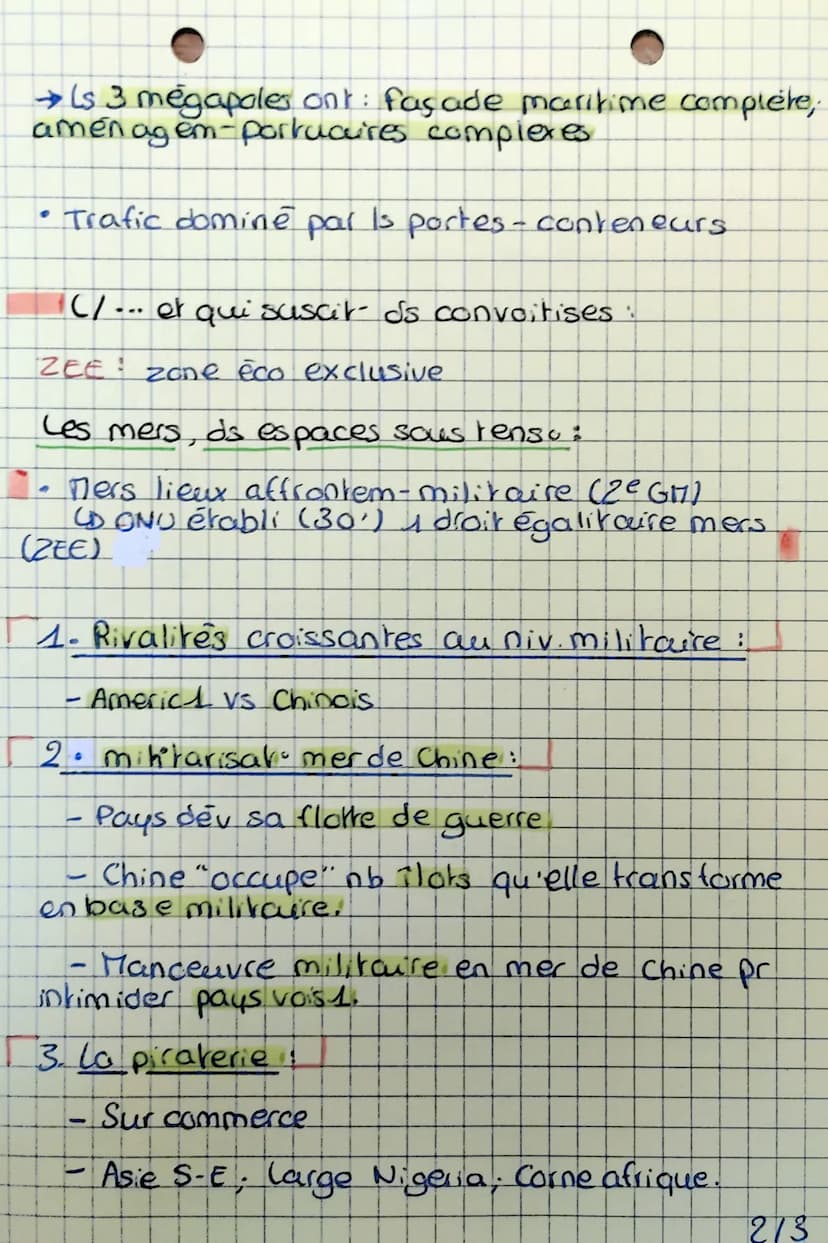 → ls 3 mégapoles ont : façade maritime complète,
aménagem-portuaires complexes
• Trafic dominé par ls portes-conteneurs
C/ ... et qui suscit- ds convoitises :
ZEE : zone éco exclusive
Les mers, ds espaces sous tens° :
• Mers lieux affrontem-militaire (2e GM)
↳ ONU établi (30') 1 droit égalitaire mers
(ZEE)
1. Rivalités croissantes au niv. militaire :
- Americ1 vs Chinois
2. militarisat° mer de Chine :
- Pays dév sa flotte de guerre
- Chine "occupe" nb îlots qu'elle transforme
en base militaire.
- Manœuvre militaire en mer de chine pr
intimider pays vois1.
3. La piraterie :
- Sur commerce
- Asie S-E ; large Nigeria ; Corne afrique.
2/3